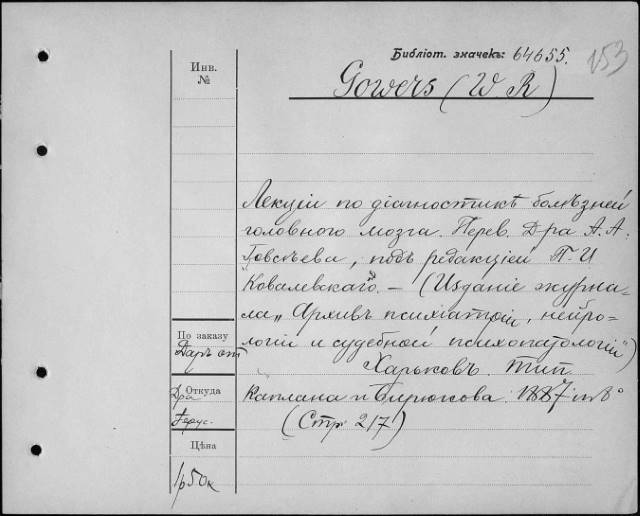 Библіот. значекъ: 64655.
153
Gowers (W. R)
Инв.
№
Лекціи по діагностикѣ болѣзней
головного мозга. Перев. Д-ра А. А.
подъ редакціей П. И
Ковалевскаго. — (Изданіе журна-
ла „Архивъ психіатріи, нейро-
логіи и судебной психопатологіи")
Харьковъ. Тип.
Каплана и Бирюкова. 1887 in 8°
(Стр. 217)
По заказу
Даръ от
Откуда
Д-ра
Цѣна
1р 50к